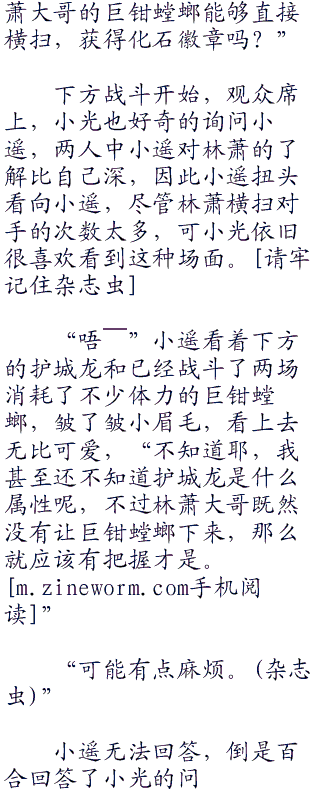 萧大哥的巨钳螳螂能够直接
横扫，获得化石徽章吗？”
下方战斗开始，观众席
上，小光也好奇的询问小
遥，两人中小遥对林萧的了
解比自己深，因此小遥扭头
看向小遥，尽管林萧横扫对
手的次数太多，可小光依旧
很喜欢看到这种场面。[请牢
记住杂志虫]
“唔——”小遥看着下方
的护城龙和已经战斗了两场
消耗了不少体力的巨钳螳
螂，皱了皱小眉毛，看上去
无比可爱，“不知道耶，我
甚至还不知道护城龙是什么
属性呢，不过林萧大哥既然
没有让巨钳螳螂下来，那么
就应该有把握才是。
[m.zineworm.com手机阅
读]”
“可能有点麻烦。(杂志
虫)”
小遥无法回答，倒是百
合回答了小光的问